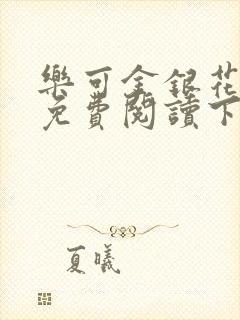 樂可金銀花
免費閱讀下
夏曦